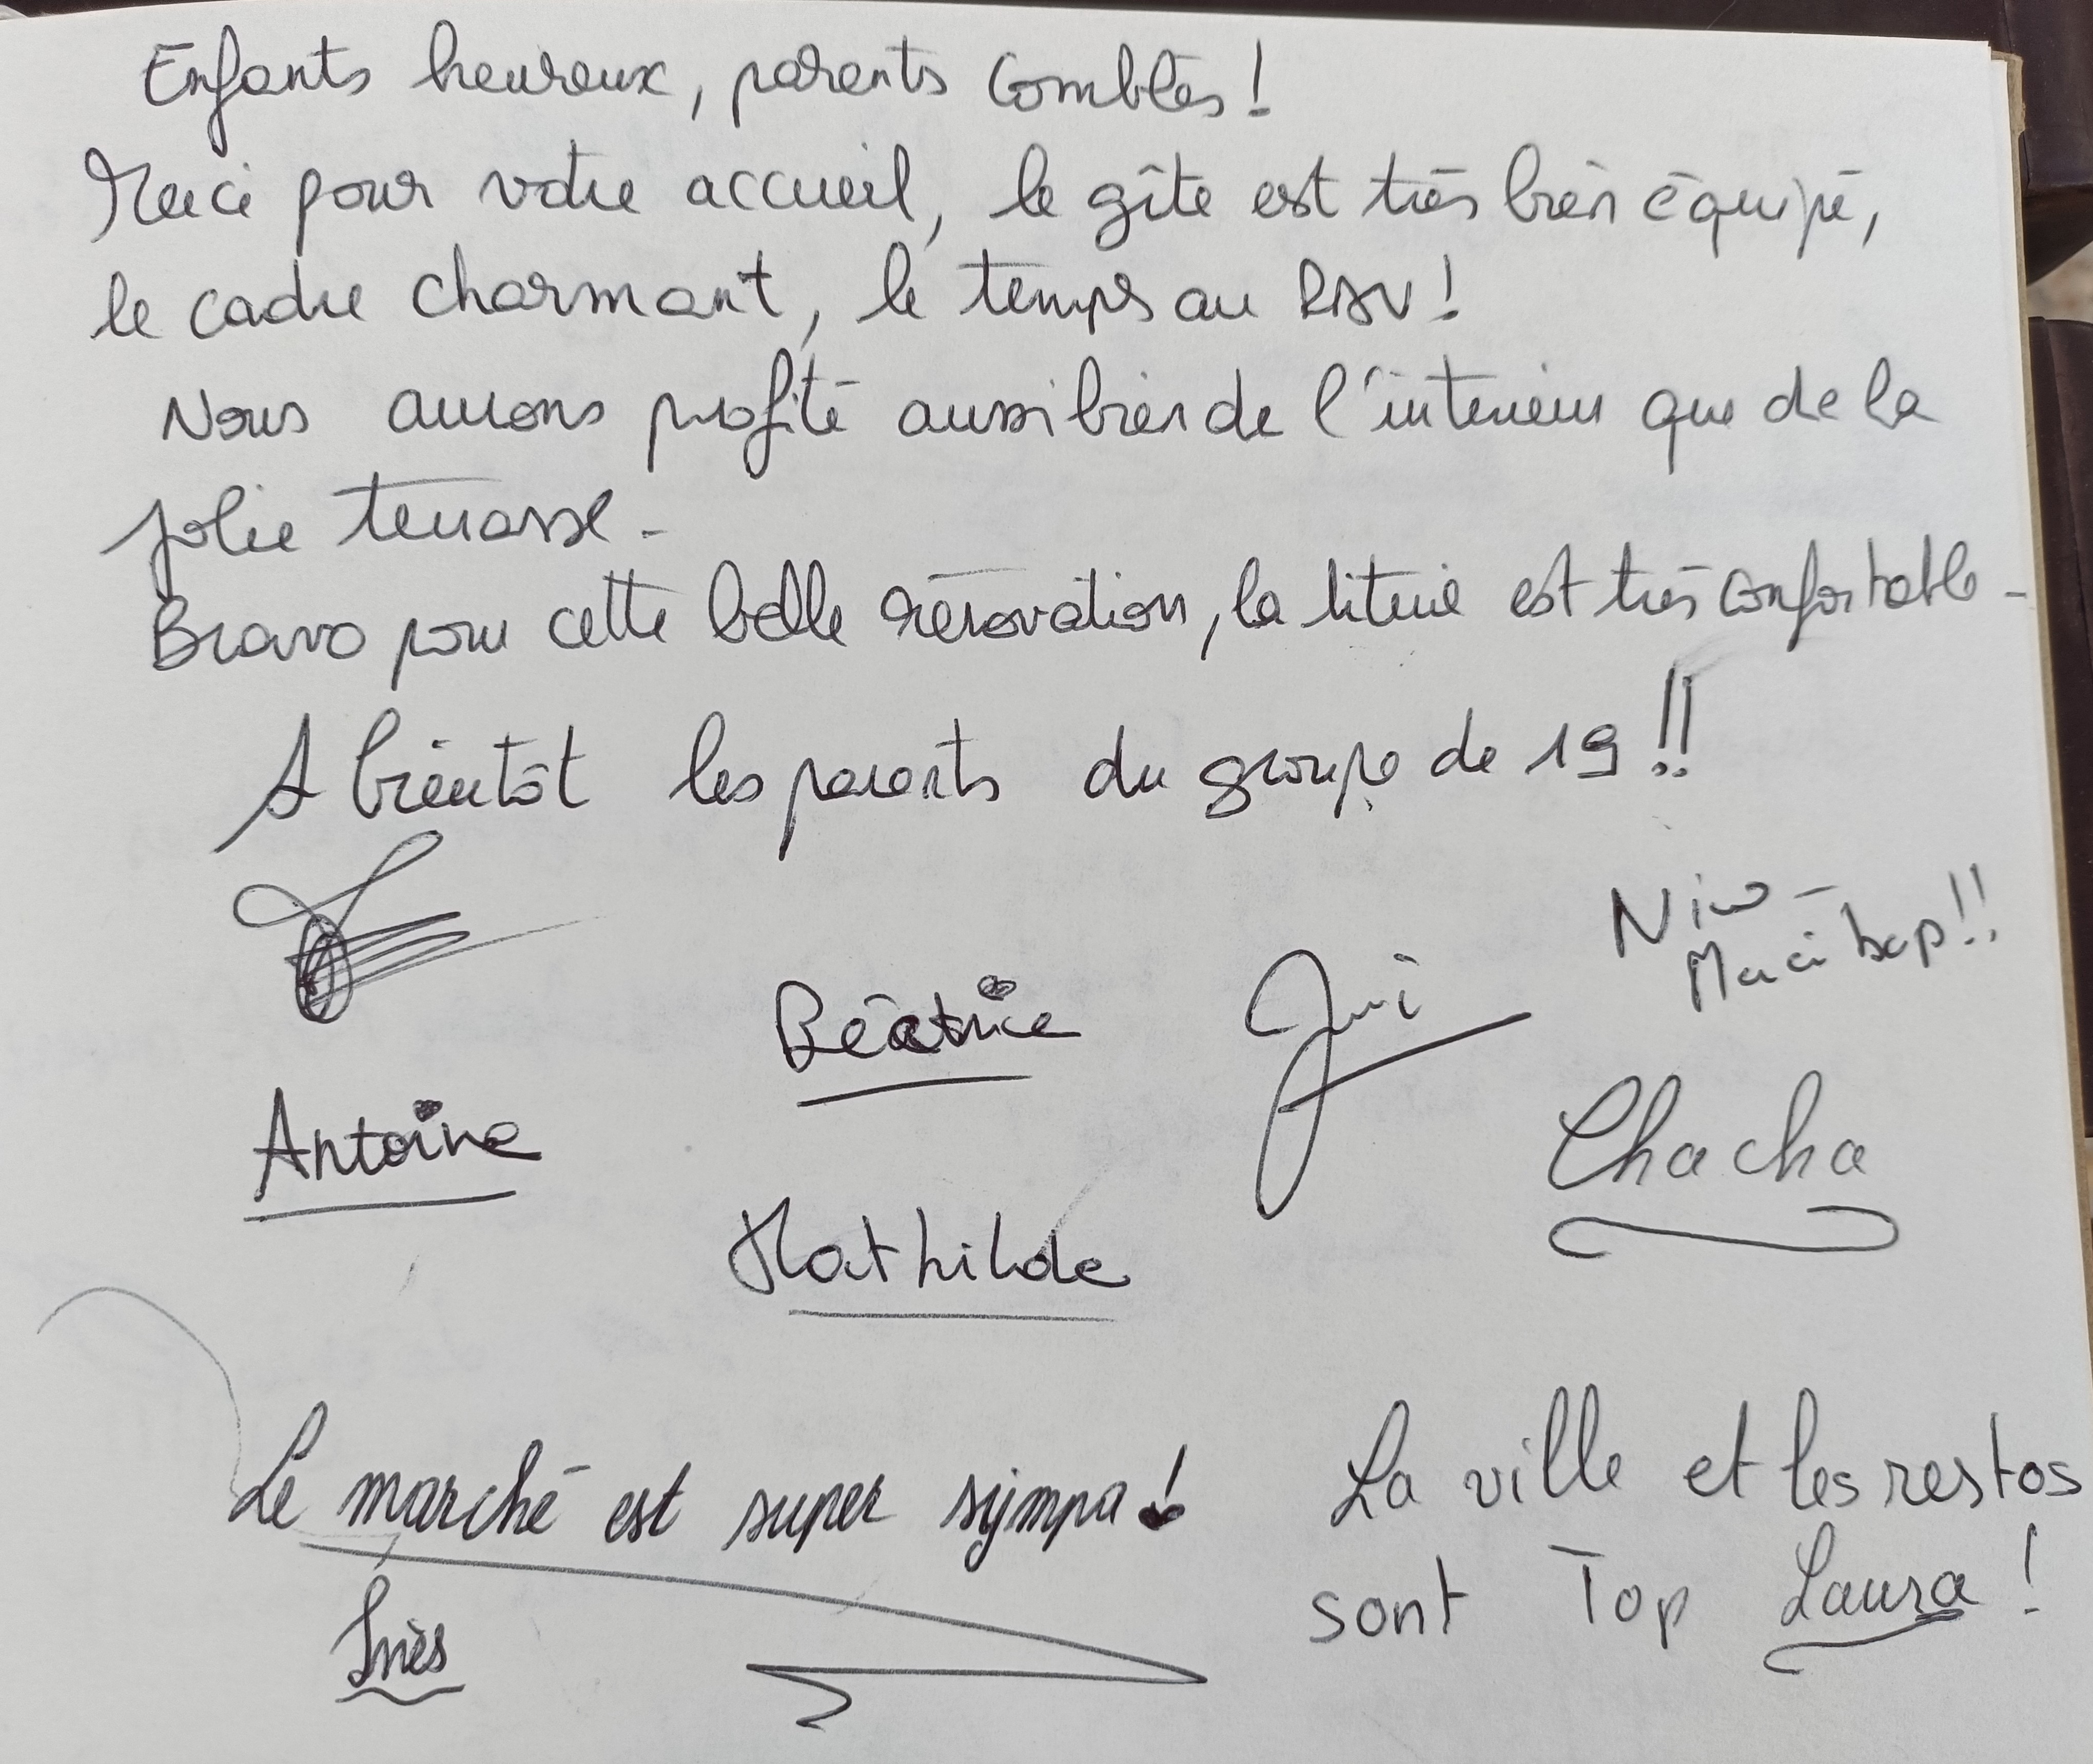 Enfants heureux, parents comblés !
Merci pour votre accueil, le gîte est très bien équipé,
le cadre charmant, le temps au RDV !
Nous aurons profité aussi bien de l'intérieur que de la
jolie terrasse -
Bravo pour cette belle rénovation, la literie est très confortable -
A bientôt les parents du groupe de 19 !!
Nico -
Merci bcp !!
Béatrice
Antoine
Chacha
Mathilde
Le marché est super sympa !
Inès
La ville et les restos
sont Top Laura !